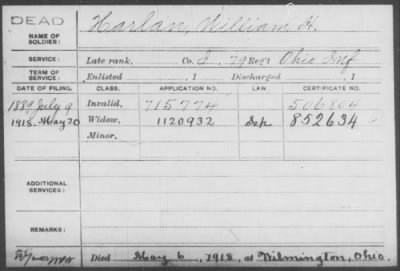 DEAD
NAME OF SOLDIER: Harlan, William H.
SERVICE: Late rank, Co. I, 79 Reg't Ohio Inf
TERM OF SERVICE: Enlisted , 1 Discharged , 1
DATE OF FILING. CLASS. APPLICATION NO. LAW. CERTIFICATE NO.
1889 July 9 Invalid, 715774 506804
1918. May 20 Widow, 1120932 Sep 852634
Minor,
ADDITIONAL SERVICES:
REMARKS:
Died May 6, 1918, at Wilmington, Ohio.